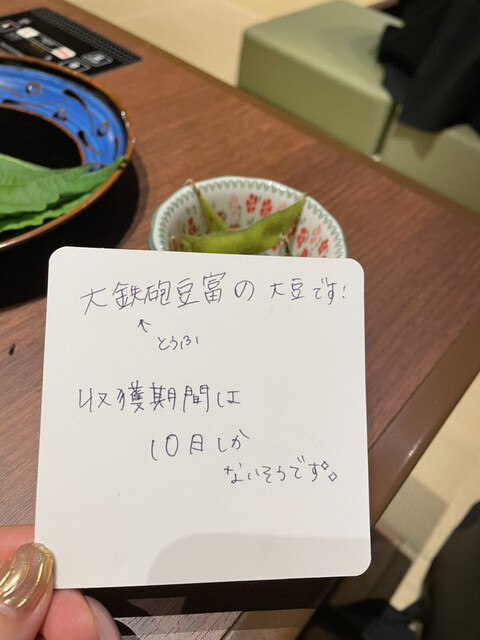 大鉄砲豆富の大豆です!
↑
とうふ
収獲期間は
10日しか
ないそうです。